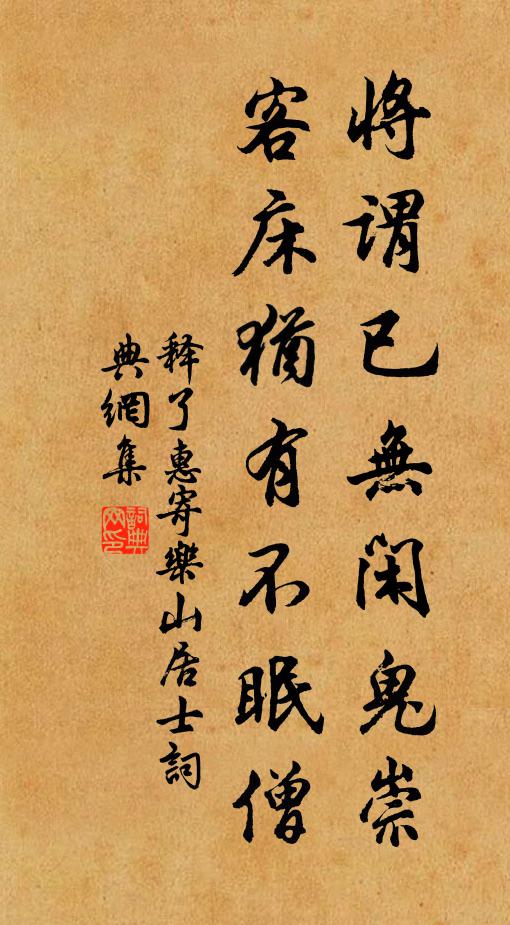 將謂已無閑鬼崇
客床猶有不眠僧
释了惠寄樂山居士詞
典網集
詞典網印